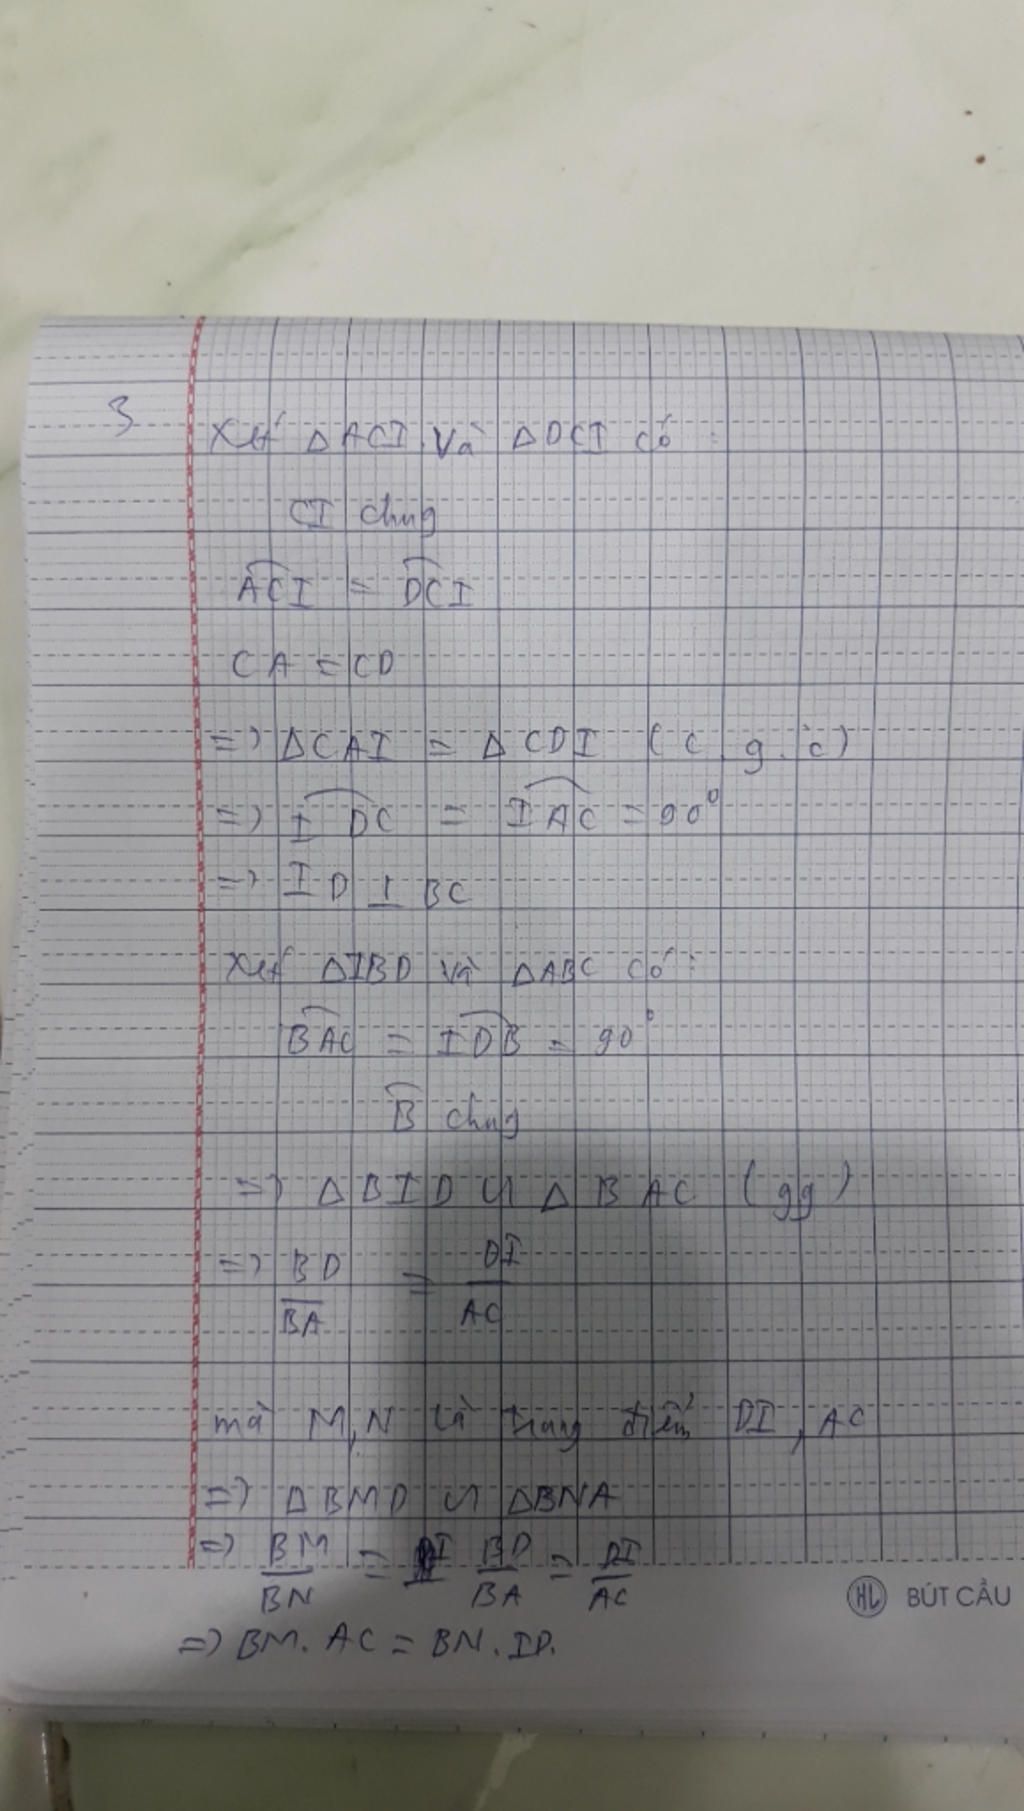 3
Xét ΔACI và ΔDCI có:
CI chug
ACI = DCI
CA = CD
=> ΔCAI = ΔCDI (c.g.c)
=> IDC = IAC = 90°
=> ID ⊥ BC
Xét ΔIBD và ΔABC có:
BAC = IDB = 90°
B chug
=> ΔBID ∽ ΔBAC (gg)
=> BD/BA = DI/AC
mà M,N là trung điểm DI, AC
=> ΔBMD ∽ ΔBNA
=> BM/BN = BD/BA = DI/AC
=> BM. AC = BN. ID.
HL BÚT CẦU